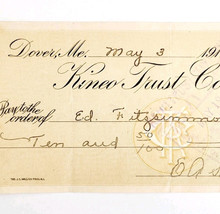 Dover, Me. May 3 191
Kineo Trust Co
Pay to the
order of Ed. Fitzsimmo
Ten and 50
100